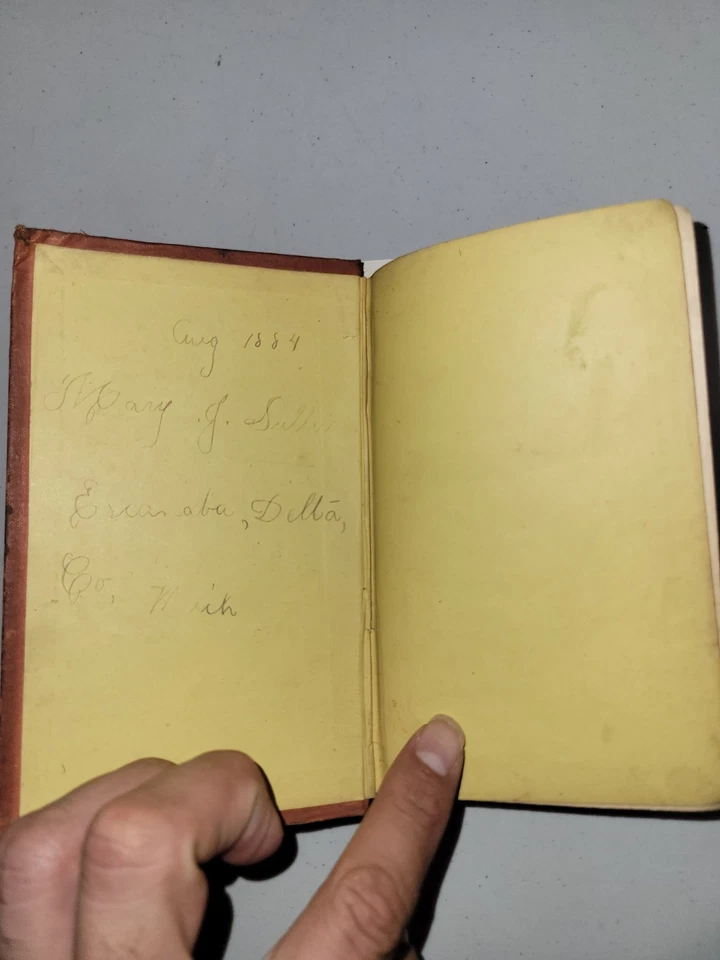 Aug 1884
Mary J.
Escanaba, Delta,
Co, Mich